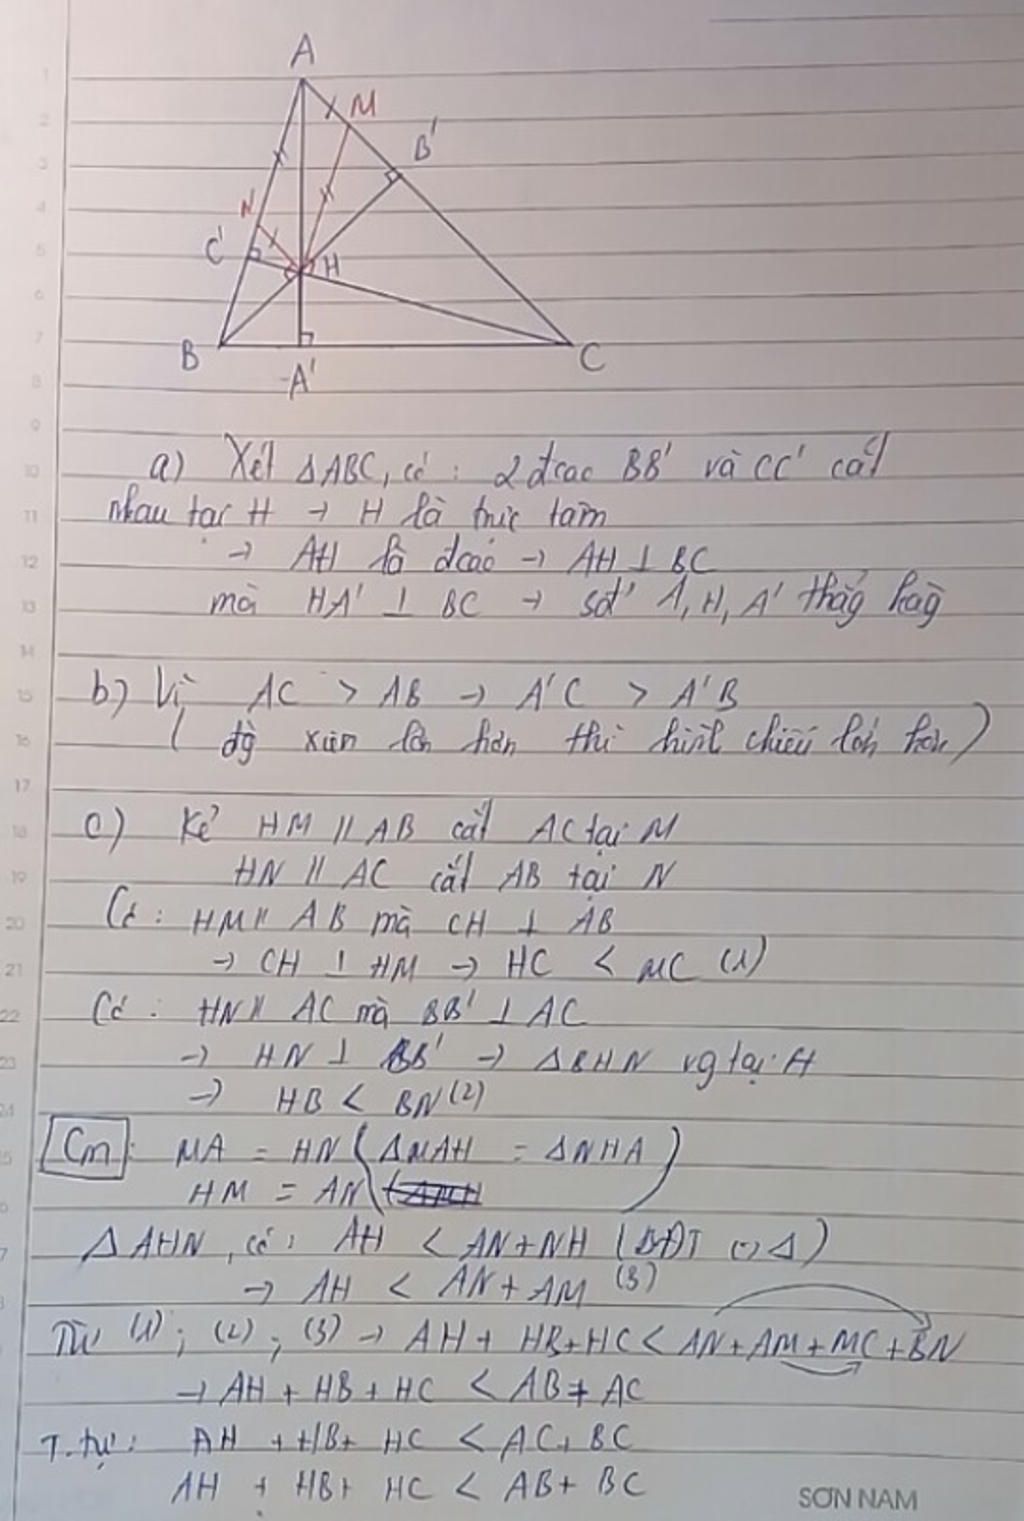 A
M
B'
N
C'
H
B
A'
C
a) Xét ΔABC, có : 2 đcao BB' và CC' cắt
nhau tại H → H là trực tâm
→ AH là đcao → AH ⊥ BC
mà HA' ⊥ BC → A, H, A' thẳg hàg
b) Vì AC > AB → A'C > A'B
( đg xiên lớn hơn thì hình chiếu lớn hơn)
c) Kẻ HM // AB cắt AC tại M
HN // AC cắt AB tại N
Có : HM // AB mà CH ⊥ AB
→ CH ⊥ HM → HC < MC (1)
Có : HN // AC mà BB' ⊥ AC
→ HN ⊥ BB' → ΔBHN vg tại H
→ HB < BN (2)
Cm : MA = HN ( ΔMAH = ΔNHA )
HM = AN
ΔAHN, có : AH < AN + NH ( BĐT Δ )
→ AH < AN + AM (3)
Từ (1) ; (2) ; (3) → AH + HB + HC < AN + AM + MC + BN
→ AH + HB + HC < AB + AC
T. tự : AH + HB + HC < AC + BC
AH + HB + HC < AB + BC
SƠN NAM